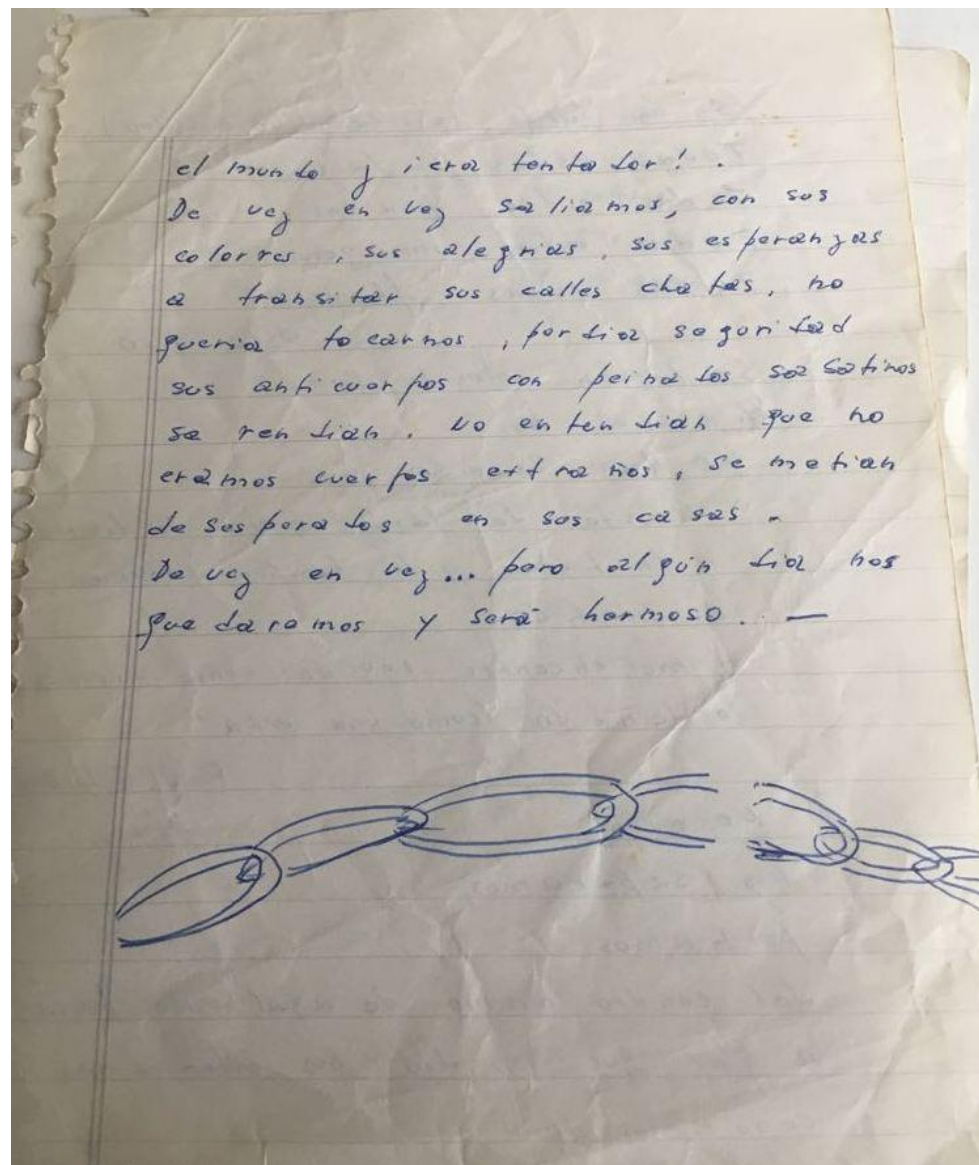 el mundo y ¡era tentador!.
De vez en vez saliamos, con sus
colorres, sus alegrias, sus esperanzas
a transitar sus calles chatas, no
queria tocarnos, perdia seguridad
sus anticuerpos con peinados
se rendian. No entendian que no
eramos cuerpos extraños, se metian
desesperados en sus casas.
De vez en vez... pero algún dia nos
quedaremos y será hermoso. —